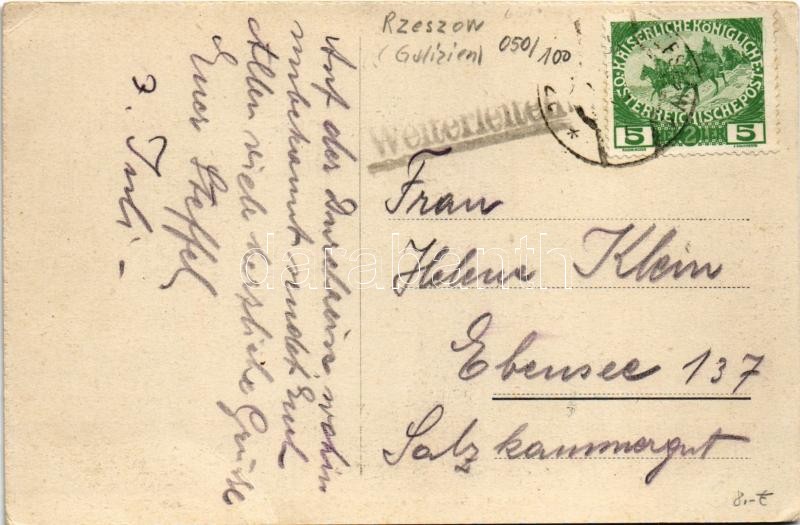 Rzeszow
(Galizien)
050/100
KAISERLICHE KÖNIGLICHE
ÖSTERREICHISCHE POST
5 +2h 5
Weiterleiten
Auf der Durchreise wohin
unbekannt sendet Euch
Allen viele herzliche Grüße
Euer Steffel
3. Juli -
Frau
Helene Klein
Ebensee 137
Salzkammergut
darabanth
8.-€